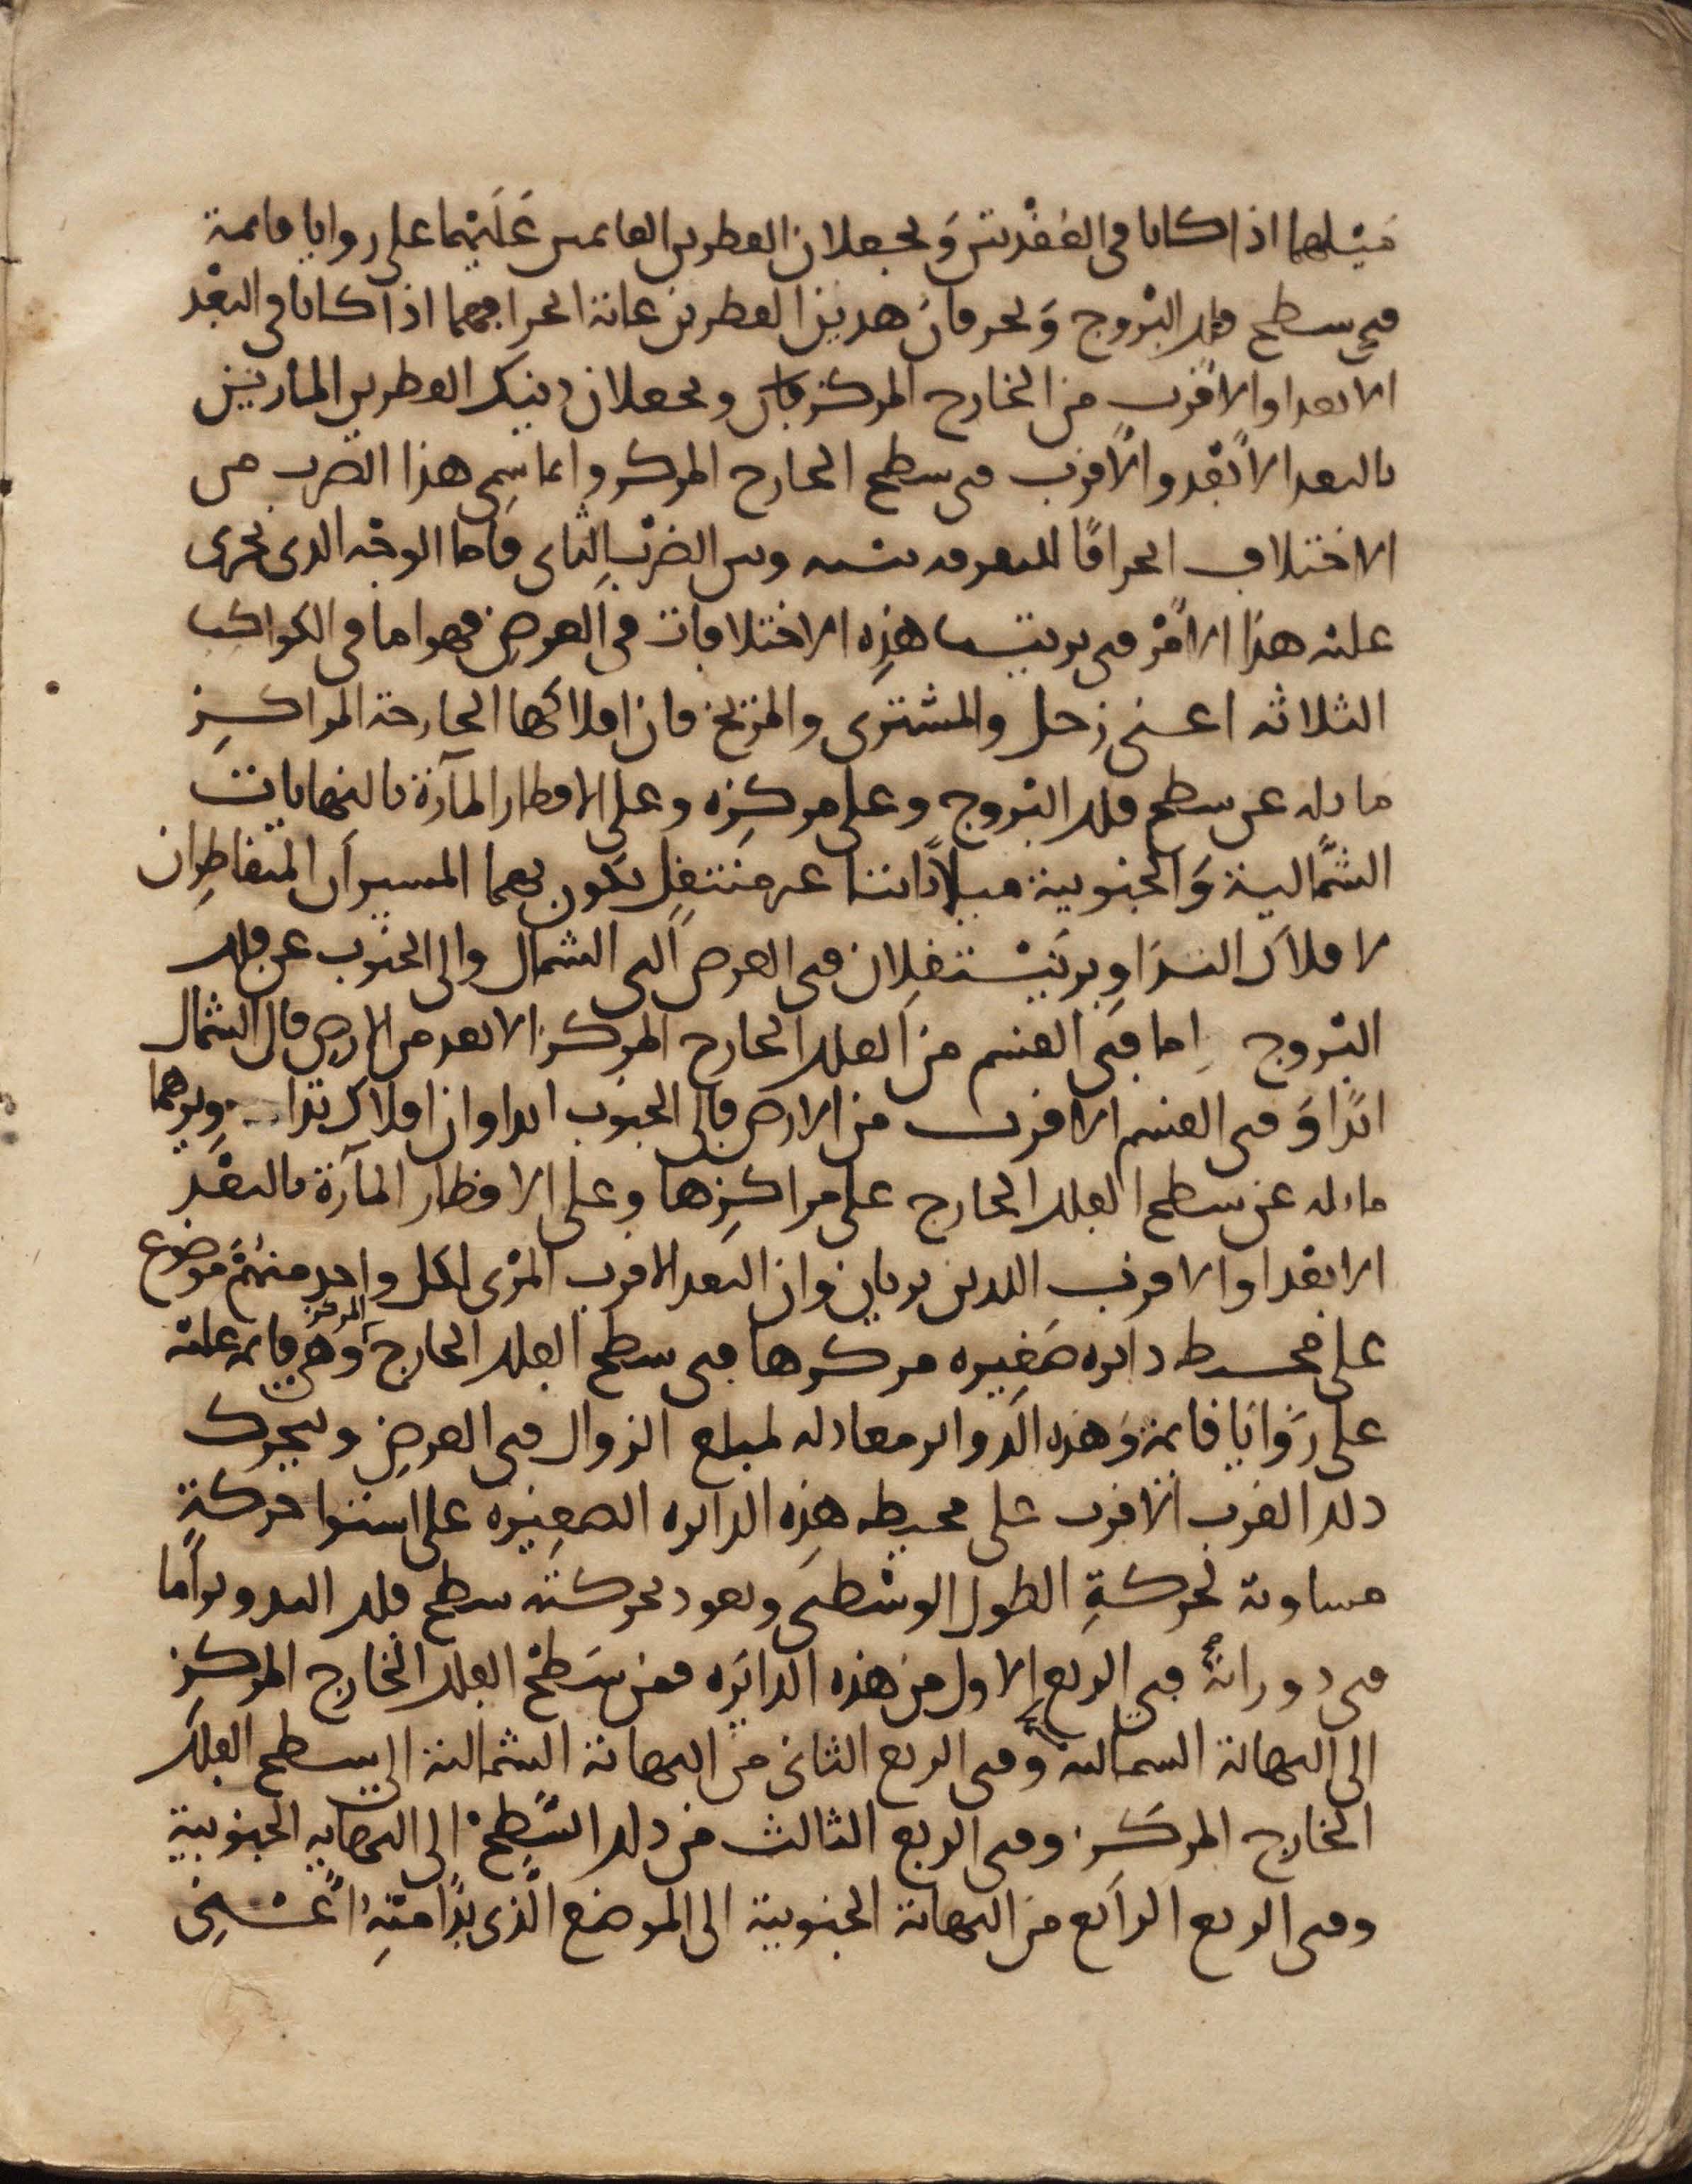 ميلهما اذا كانا في العقدتين ويجعلان القطرين القائمين عليهما على زوايا قائمة
في سطح فلك البروج ويحرفان هذين القطرين غاية انحرافهما اذا كانا في البعد
الابعد او الاقرب من الخارج المركز ويجعلان ذينك القطرين المارين
بالبعد الابعد والاقرب في سطح الخارج المركز وانما سمي هذا الضرب من
الاختلاف انحرافا للتفرقة بينه وبين الضرب الثاني فاما الوجه الذي يجري
عليه هذا الامر في ترتيب هذه الاختلافات في العرض فهو اما في الكواكب
الثلاثه اعني زحل والمشتري والمريخ فان افلاكها الخارجة المراكز
مايله عن سطح فلك البروج وعلى مركزه وعلى الاقطار المارة بالنهايات
الشمالية والجنوبية ميلا ثابتا غير منتقل يكون بهما المسيران المتقاطران
لافلاك التداوير ينتقلان في العرض الى الشمال والى الجنوب عن فلك
البروج اما في القسم من الفلك الخارج المركز الابعد من الارض فالى الشمال
ابدا وفي القسم الاقرب من الارض فالى الجنوب ابدا وان افلاك تداويرهما
مايله عن سطح الفلك الخارج على مراكزها وعلى الاقطار المارة بالبعد
الابعد او الاقرب اللذين يريان وان البعد الاقرب المرئي لكل واحد منهم موضوع
على محيط دايره صغيره مركزها في سطح الفلك الخارج المركز وهي قايمه عليه
على زوايا قايمة وهذه الدواير معادله لمبلغ الزوال في العرض ويتحرك
ذلك القرب الاقرب على محيط هذه الدايره الصغيره على استوا حركة
مساوية لحركة الطول الوسطى ويعود بحركته سطح فلك التدوير اما
في دورانه في الربع الاول من هذه الدايره فمن سطح الفلك الخارج المركز
الى النهاية الشمالية وفي الربع الثاني من النهاية الشمالية الى سطح الفلك
الخارج المركز وفي الربع الثالث من ذلك السطح الى النهايه الجنوبية
وفي الربع الرابع من النهاية الجنوبية الى الموضع الذي بدا منه اعني